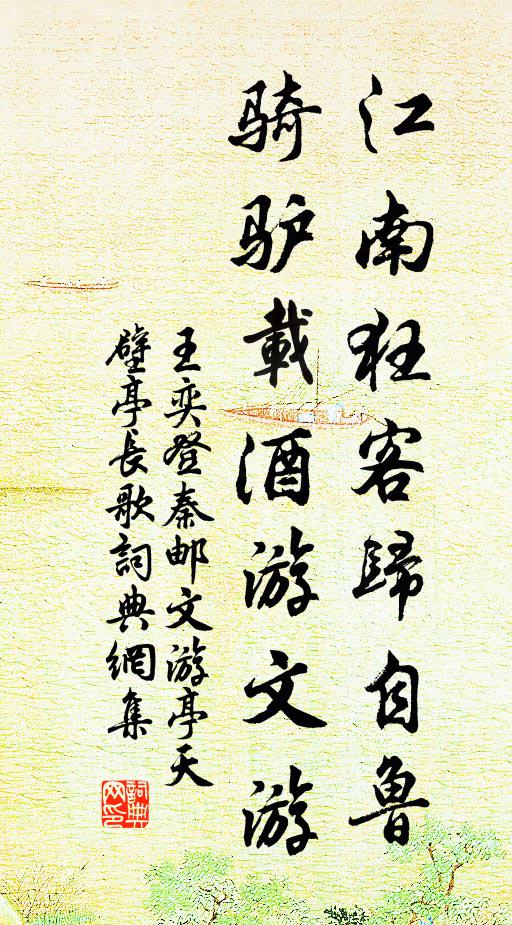 江南狂客歸自魯
骑驴載酒游文游
王奕登秦邮文游亭天
壁亭长歌詞典網集
詞典
网印